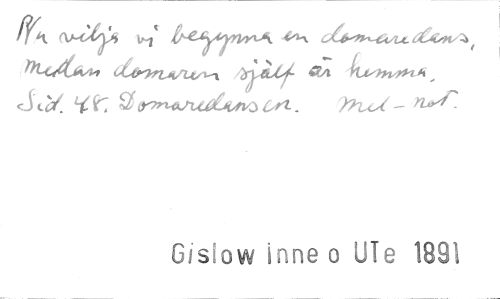 Nu vilja vi begynna en domaredans,
medan domaren själf är hemma.
Sid. 48. Domaredansen. Mel-not.
Gislow Inne o UTe 1891